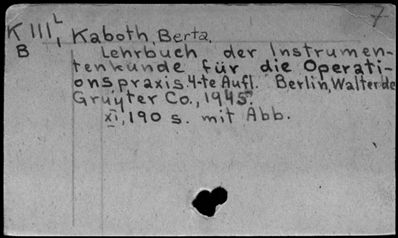 7
K III L 1 Kaboth, Berta.
B Lehrbuch der Instrumen-
tenkunde für die Operati-
onspraxis. 4-te Aufl. Berlin, Walter de
Gruyter Co., 1945.
XI, 190 s. mit Abb.